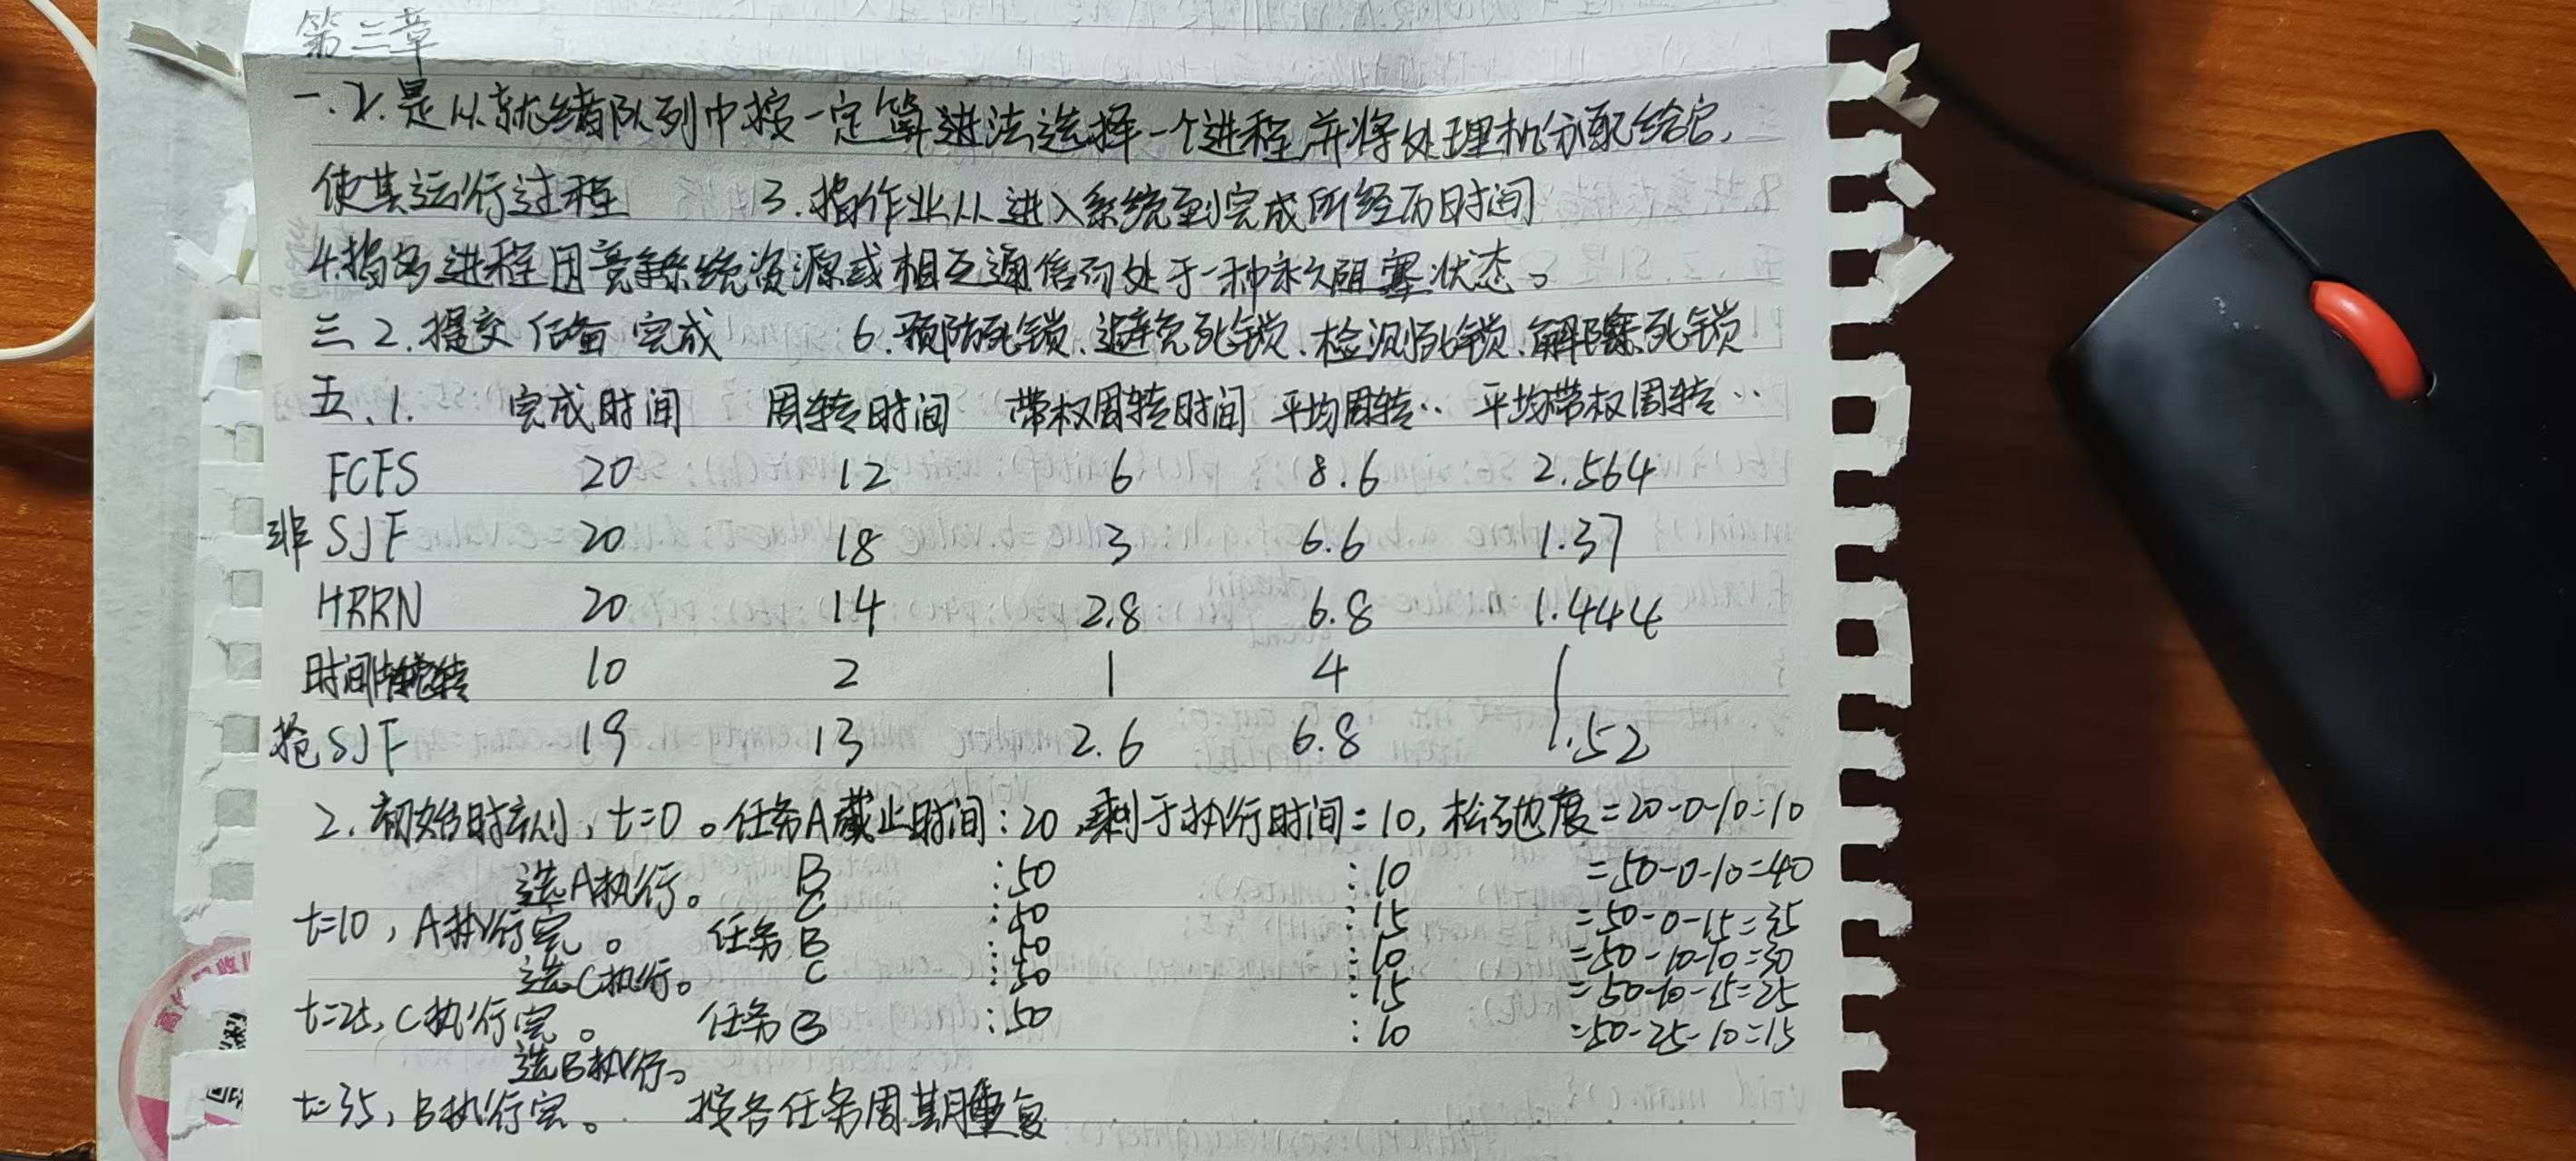 第三章
一.2.是从就绪队列中按一定算法选择一个进程并将处理机分配给它,
使其运行过程 3.指作业从进入系统到完成所经历时间
4.指各进程因竞争系统资源或相互通信而处于一种永久阻塞状态。
三 2.提交 后备 完成 6.预防死锁、避免死锁、检测死锁、解除死锁
五、1. 完成时间 周转时间 带权周转时间 平均周转‥ 平均带权周转‥
FCFS 20 12 6 8.6 2.564
非SJF 20 18 3 6.6 1.37
HRRN 20 14 2.8 6.8 1.444
时间 转 10 2 1 4 1
抢SJF 19 13 2.6 6.8 1.52
2.初始时刻,t=0。任务A截止时间:20,剩于执行时间=10,松弛度=20-0-10=10
选A执行。 B :50 :10 =50-0-10=40
C :50 :15 =50-0-15=35
t=10,A执行完。 任务B :50 :10 =50-10-10=30
选C执行。 C :50 :15 =50-10-15=25
t=25,C执行完。 任务B :50 :10 =50-25-10=15
选B执行。
t=35,B执行完。 按各任务周期重复